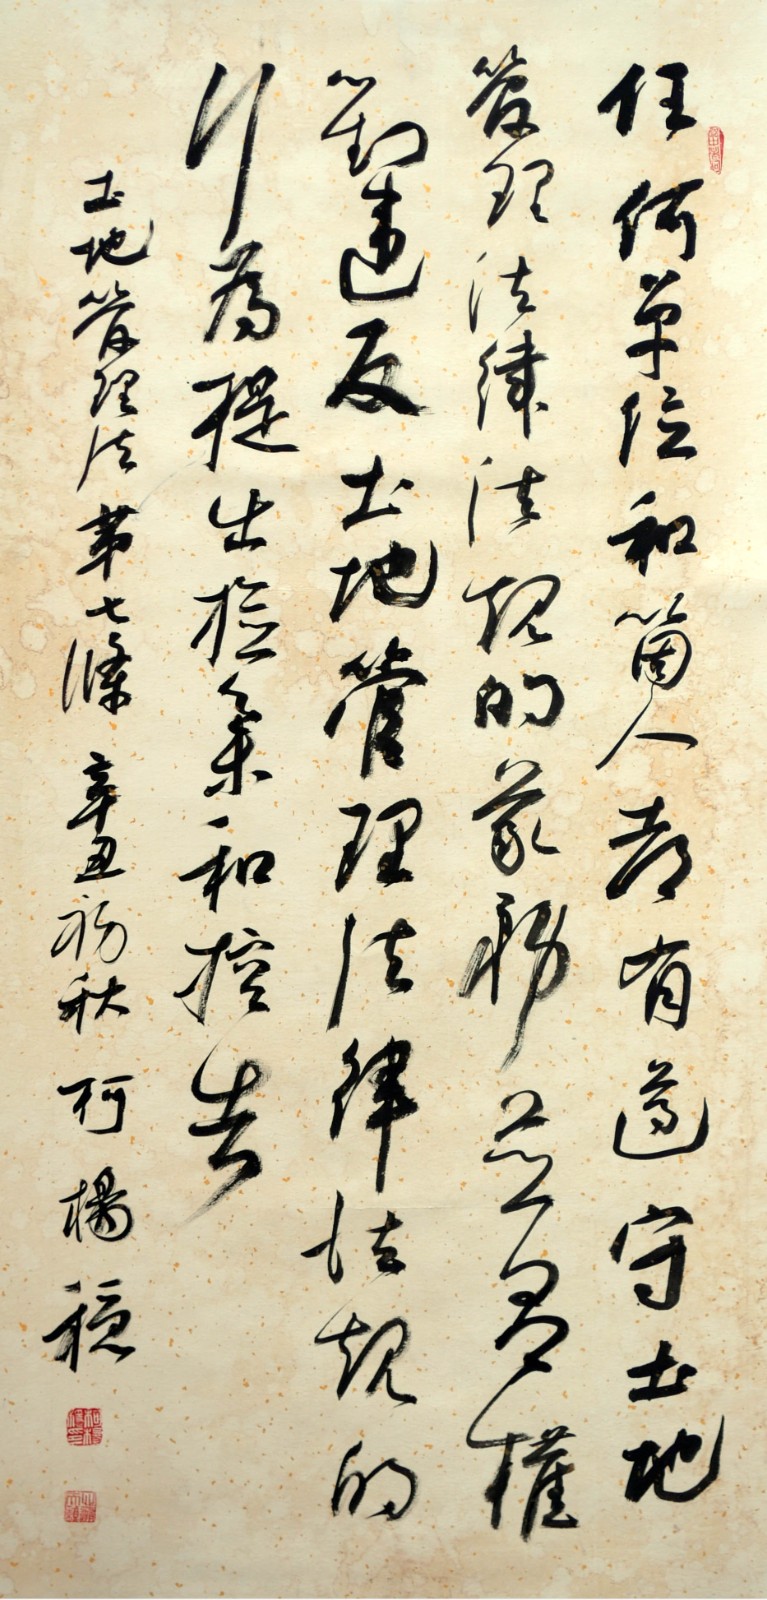 任何單位和箇人都有遵守土地
管理法律法規的義務並有權
對違反土地管理法律法規的
行為提出檢舉和控告
土地管理法第七條 辛丑初秋 柯楊穩